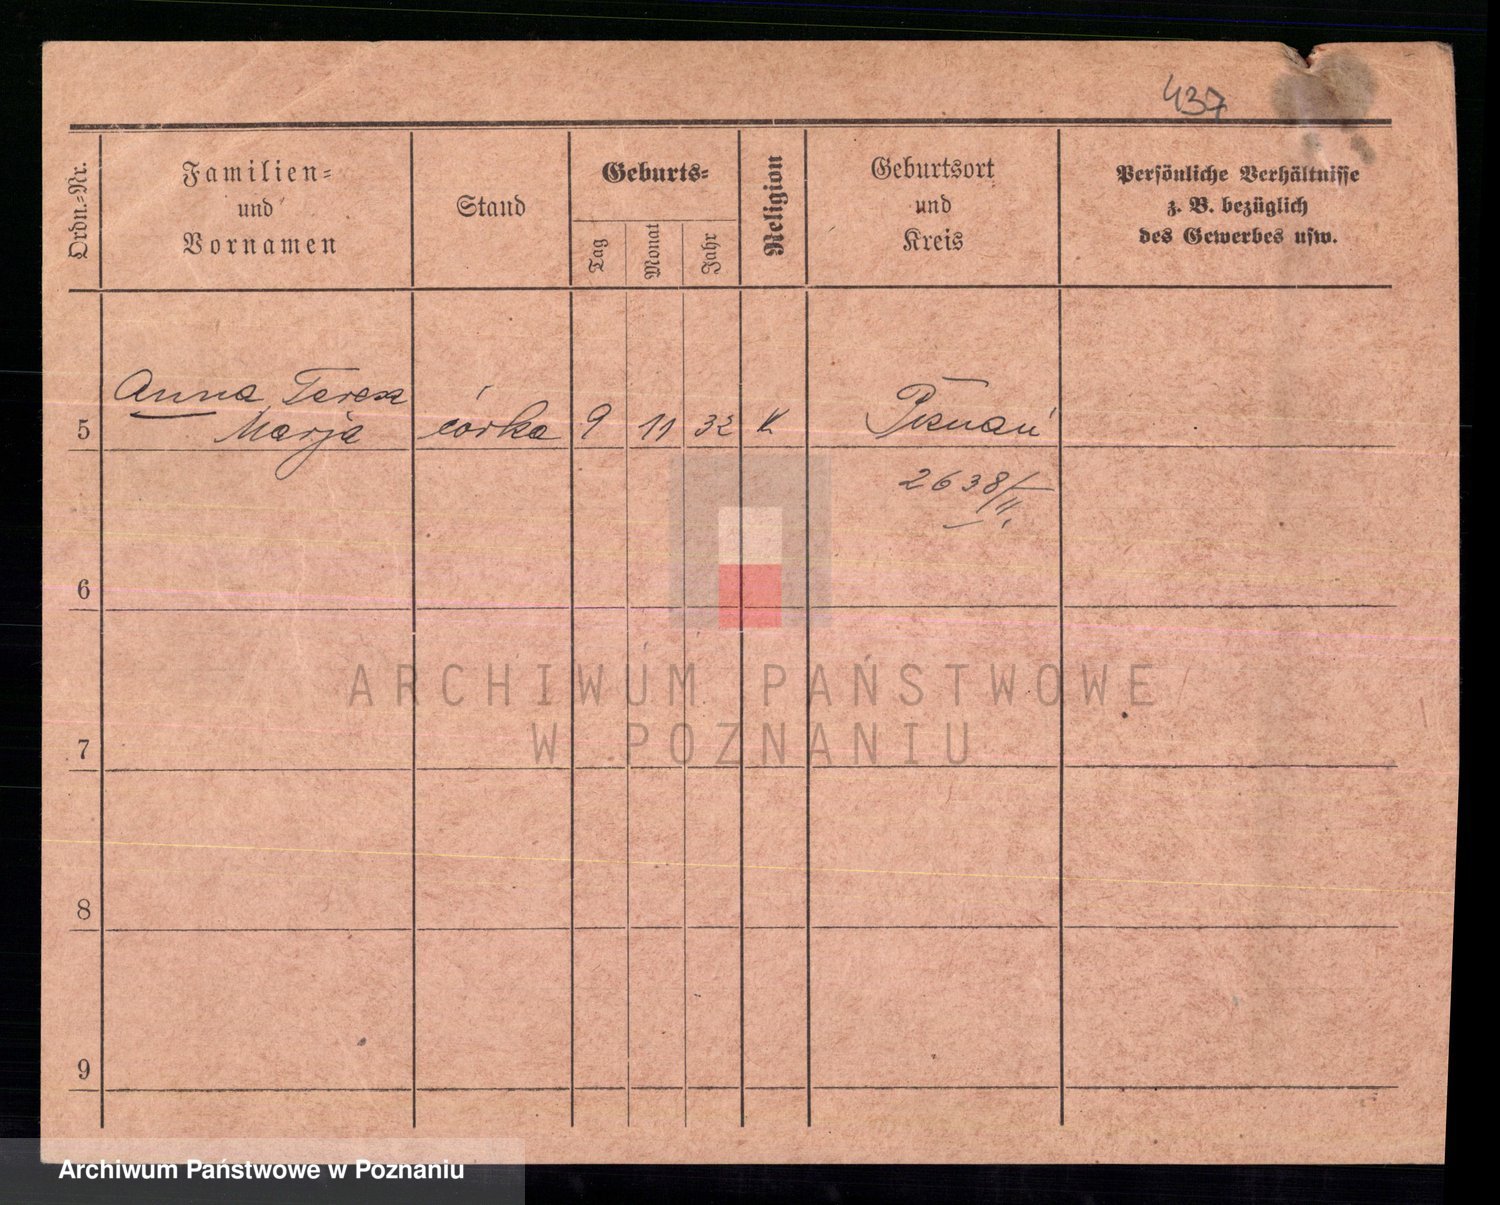 437
Ordn.-Nr.
Familien-
und
Vornamen
Stand
Geburts-
Tag
Monat
Jahr
Religion
Geburtsort
und
Kreis
Persönliche Verhältnisse
z. B. bezüglich
des Gewerbes usw.
5
Anna Teresa
Marja
córka
9
11
32
K
Poznań
2638/II.
6
7
8
9
ARCHIWUM PAŃSTWOWE
W POZNANIU
Archiwum Państwowe w Poznaniu